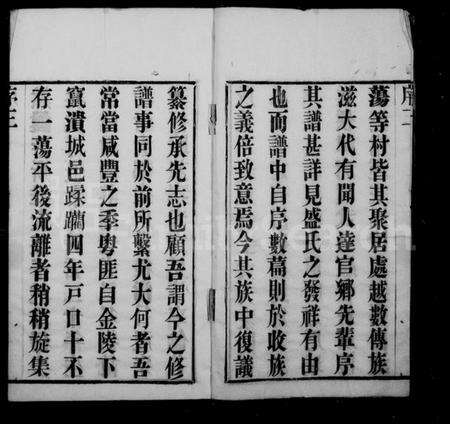 蕩等村皆其聚居處越數傳族
滋大代有聞人達官鄉先輩序
其譜甚詳見盛氏之發祥有由
也而譜中自序數篇則於收族
之義倍致意焉今其族中復議
纂修承先志也顧吾謂今之修
譜事同於前所繫尤大何者吾
常當咸豐之季粵匪自金陵下
竄潰城邑蹂躪四年戶口十不
存一蕩平後流離者稍稍旋集
序三